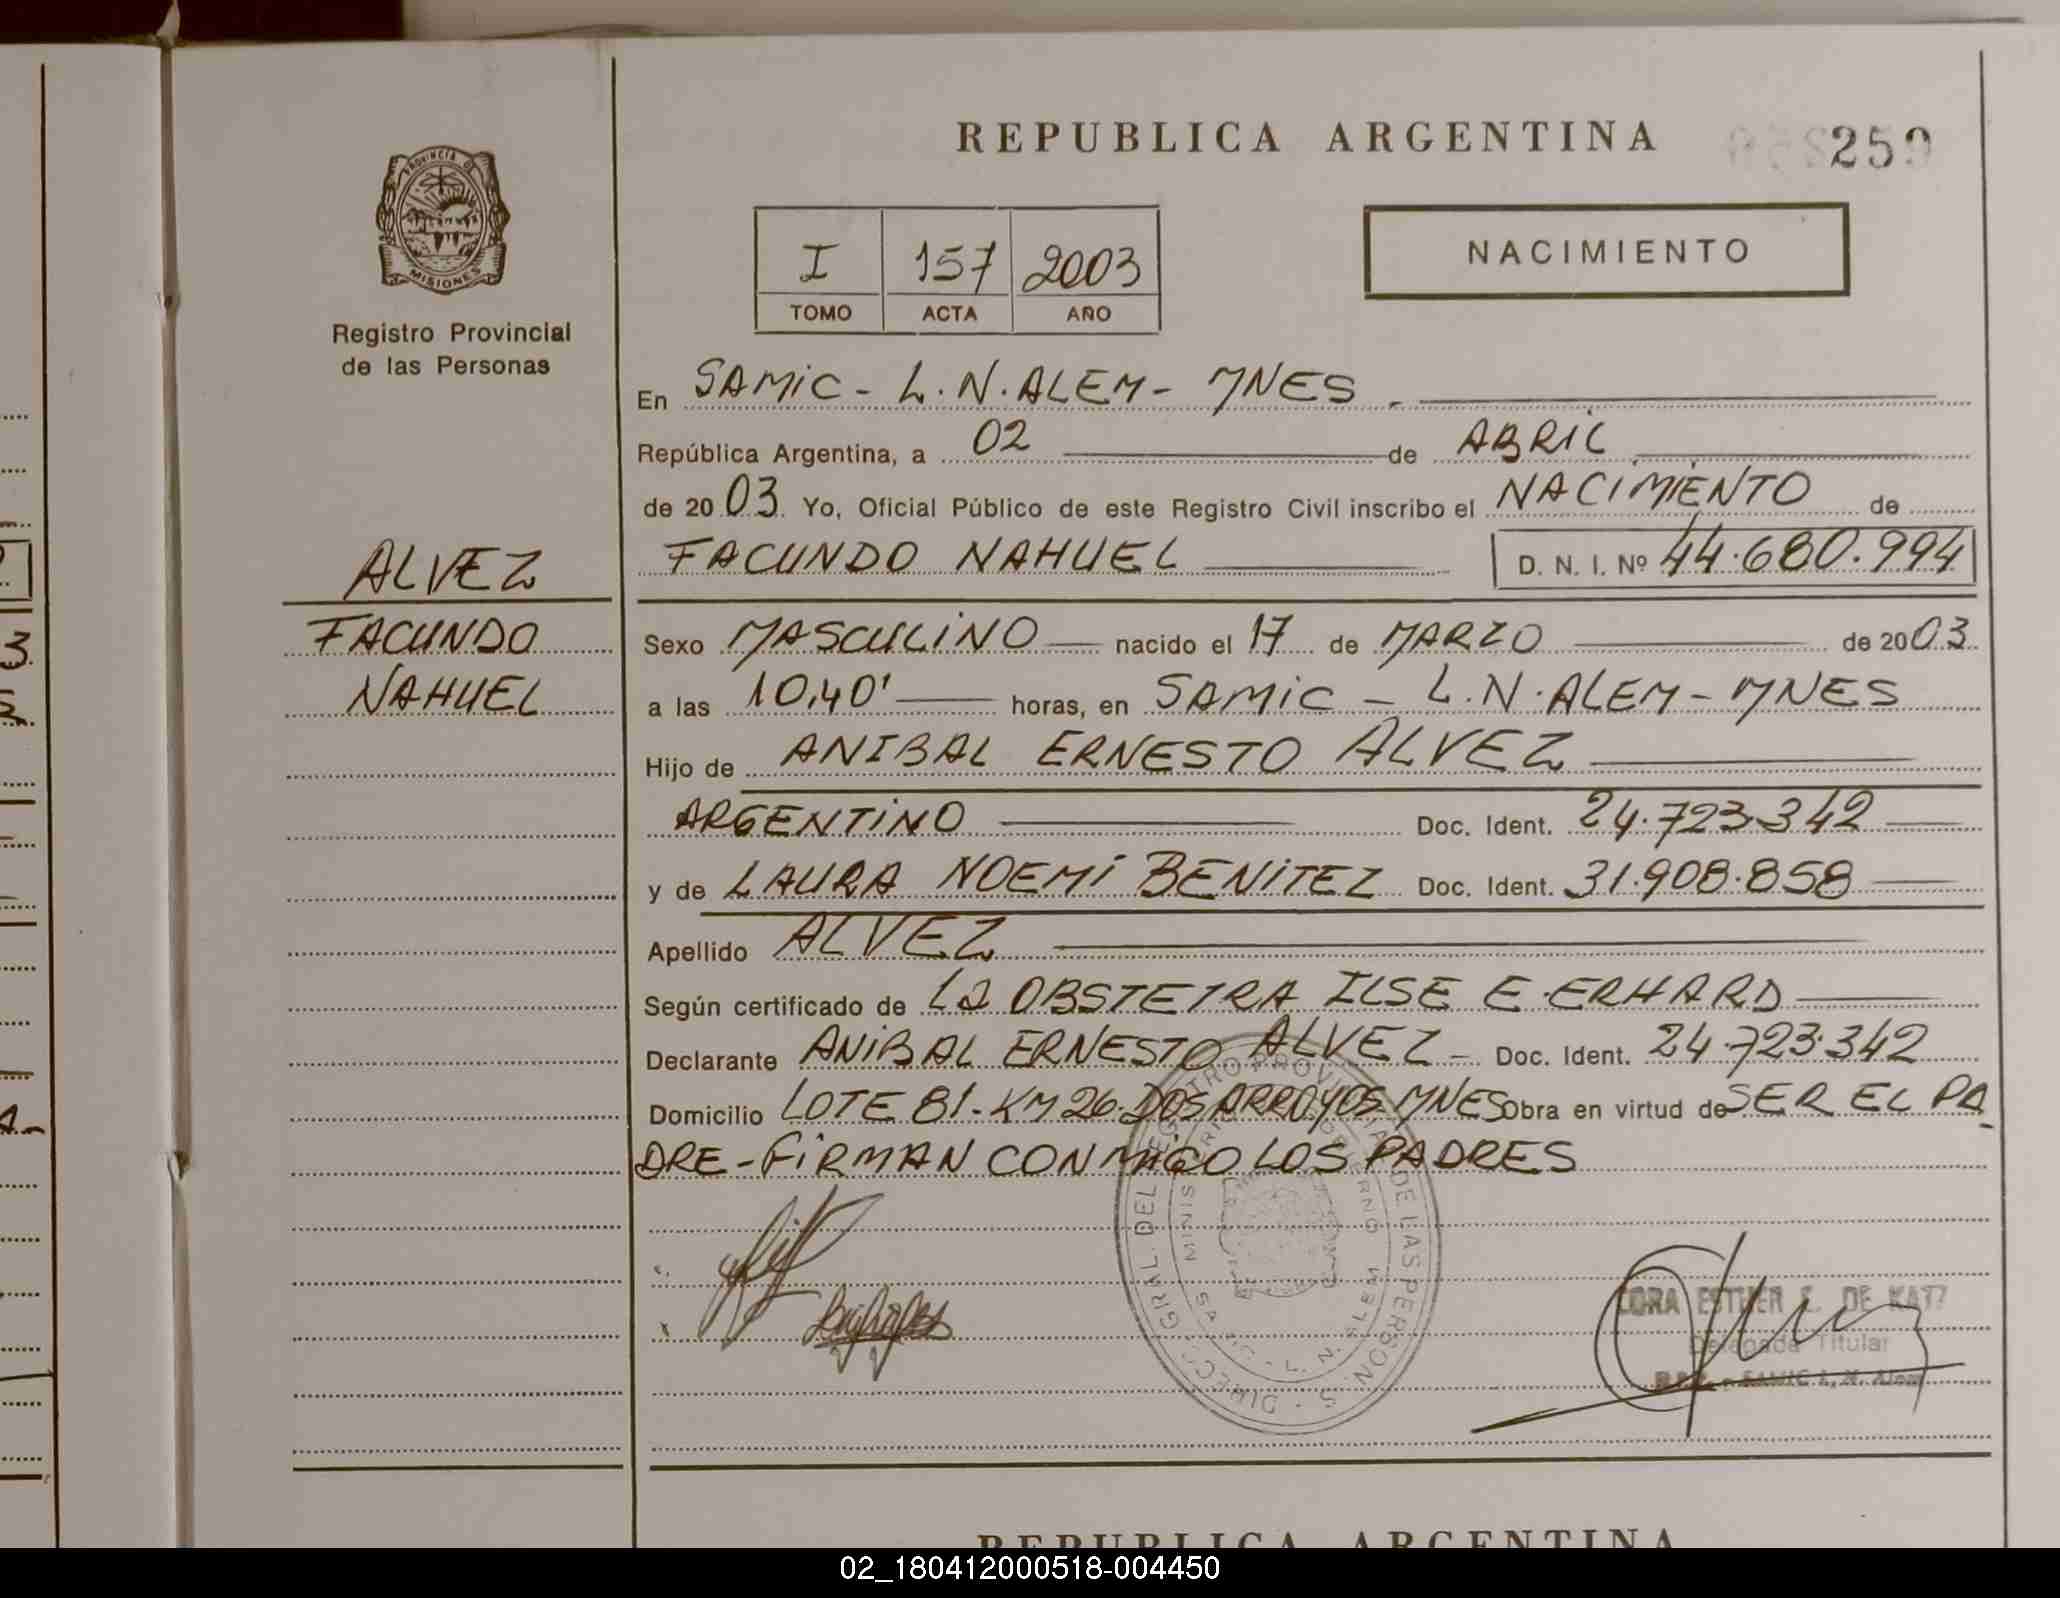 REPUBLICA ARGENTINA
259
PROVINCIA D
MISIONES
Registro Provincial
de las Personas
I 157 2003
TOMO ACTA AÑO
NACIMIENTO
En SAMIC - L.N. ALEM - MNES.
República Argentina, a 02 de ABRIL
de 2003 Yo, Oficial Público de este Registro Civil inscribo el NACIMIENTO de
FACUNDO NAHUEL D. N. I. Nº 44.680.994
ALVEZ
FACUNDO
NAHUEL
Sexo MASCULINO nacido el 17 de MARZO de 2003
a las 10,40' horas, en SAMIC - L.N. ALEM - MNES
Hijo de ANIBAL ERNESTO ALVEZ
ARGENTINO Doc. Ident. 24.723.342
y de LAURA NOEMI BENITEZ Doc. Ident. 31.908.858
Apellido ALVEZ
Según certificado de LA OBSTETRA ILSE E. ERHARD
Declarante ANIBAL ERNESTO ALVEZ - Doc. Ident. 24.723.342
Domicilio LOTE 81 - KM 26 - DOS ARROYOS MNES Obra en virtud de SER EL PA
DRE - FIRMAN CONMIGO LOS PADRES
DIRECC. GRAL. DEL REGISTRO PROVINCIAL DE LAS PERSONAS
L. N. ALEM
CORA ESTHER E. DE KATZ
Delegada Titular
SAMIC L. N. Alem
REPUBLICA ARGENTINA
02_180412000518-004450